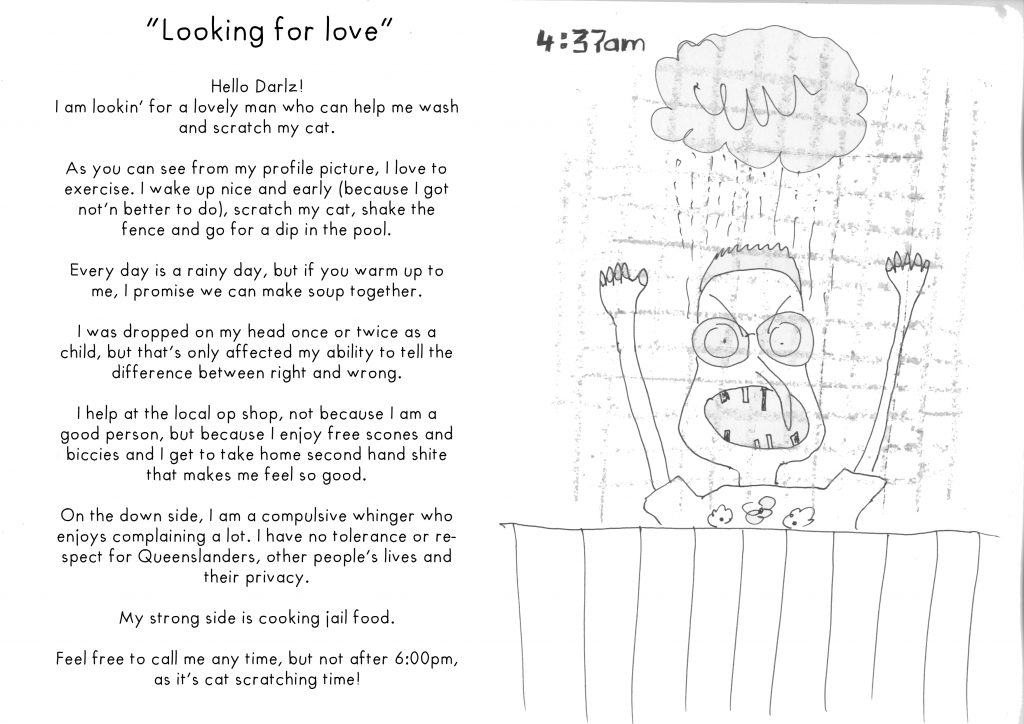 "Looking for love"
Hello Darlz!
I am lookin' for a lovely man who can help me wash
and scratch my cat.
As you can see from my profile picture, I love to
exercise. I wake up nice and early (because I got
not'n better to do), scratch my cat, shake the
fence and go for a dip in the pool.
Every day is a rainy day, but if you warm up to
me, I promise we can make soup together.
I was dropped on my head once or twice as a
child, but that's only affected my ability to tell the
difference between right and wrong.
I help at the local op shop, not because I am a
good person, but because I enjoy free scones and
biccies and I get to take home second hand shite
that makes me feel so good.
On the down side, I am a compulsive whinger who
enjoys complaining a lot. I have no tolerance or re-
spect for Queenslanders, other people's lives and
their privacy.
My strong side is cooking jail food.
Feel free to call me any time, but not after 6:00pm,
as it's cat scratching time!
4:37am